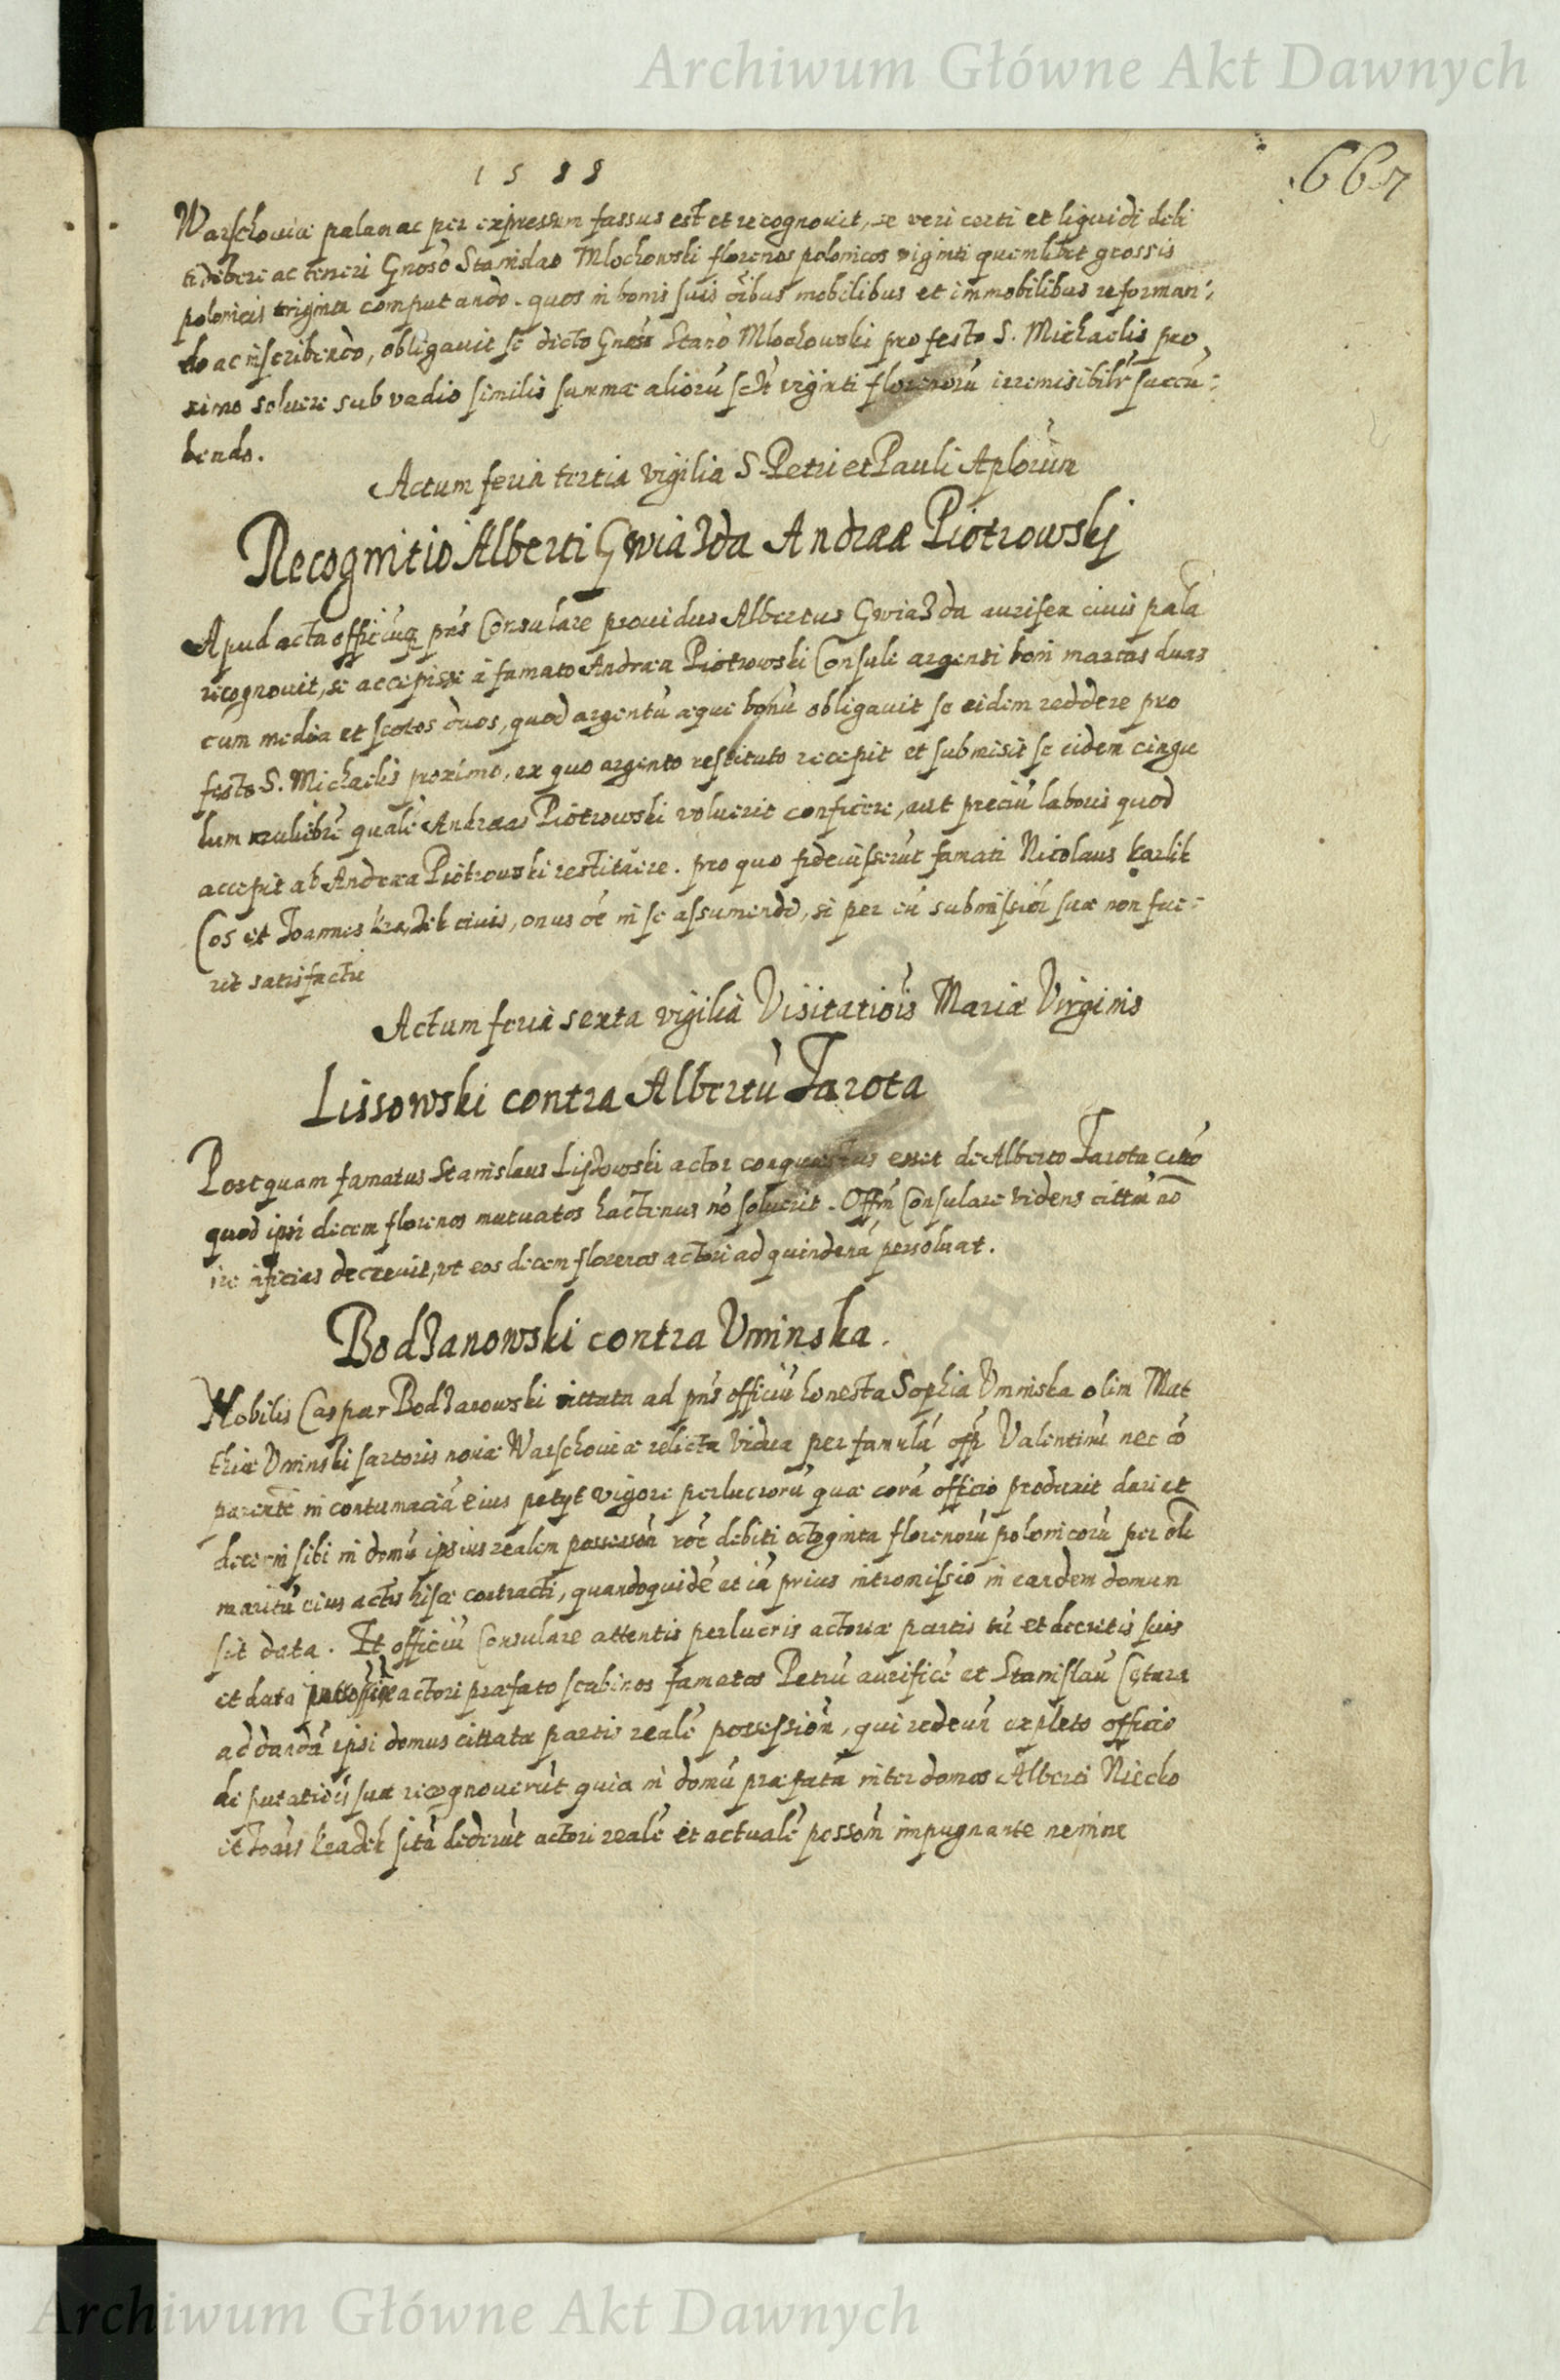 Archiwum Główne Akt Dawnych
1588
667
Warschoviæ palam ac per expressum fassus est et recognovit, se veri certi et liquidi debi
ti debere ac teneri Gnoso Stanislao Mlochowski florenos polonicos viginti quemlibet grossis
polonicis triginta computando. quos in bonis suis oibus mobilibus et immobilibus reforman:
do ac inscribendo, obligavit se dicto Gnoso Stano Mlochowski pro festo S. Michaelis pro
ximo solvere sub vadio similis summæ aliorū sclt viginti florenorū irremisibilr succū:
bendo.
Actum feria tertia vigilia S. Petri et Pauli Aplorum
Recognitio Alberti Gwiazda Andreæ Piotrowskj
Apud acta officiuqz pns Consulare providus Albertus Gwiazda aurifex civis pala
recognovit, se accepisse à famato Andrea Piotrowski Consule argenti boni marcas duas
cum media et scotos duos, quod argentū æque bonū obligavit se eidem reddere pro
festo S. Michaelis proximo, ex quo argento restituto recepit et submisit se eidem cingu
lum muliebre quale Andreas Piotrowski voluerit conficere, aut preciū laboris quod
accepit ab Andrea Piotrowski restituere. pro quo fideiusserūt famati Nicolaus Karlik
Cos et Joannes civis, onus oē in se assumendo, si per eū submissiōi suæ non fue-
rit satisfactū
Actum feria sexta vigilia Visitatiōis Mariæ Virginis
Lissowski contra Albertū Jarota
Postquam famatus Stanislaus Lissowski actor conquestus esset de Alberto Jarota
quod ipsi decem florenos mutuatos hactenus nō solverit. Offm Consulare videns cittm nō
ire inficias decrevit, vt eos decem florenos actori ad quindenā persolvat.
Bodzanowski contra Vminska.
Nobilis Caspar Bodzanowski cittata ad pns officiū honesta Sophia Vminska olim Mat
thiæ Vminski sartoris novæ Warschoviæ relicta vidua per famulū offi Valentinū nec cō
parente in contumaciā eius petyt vigore perlucrorū quæ corā officio produxit dari et
decerni sibi in domū ipsius realem possessōn rōe debiti octoginta florenorū polonicorū per oli
maritū eius actis hisce contracti, quandoquidē et iā prius intromissio in eandem domum
sit data. Et officiū Consulare attentis perlucris actoreæ partis tū et decretis suis
et data actori præfato scabinos famatos Petrū aurificē et Stanislaū Cętura
ad dandā ipsi domus cittatæ partis realē possessiōn, qui redeun expleto officio
deputatiōis suæ recognoverūt quia in domū præfatā inter domos Alberti Niecko
et Joānis sitā dederūt actori realē et actualē possōn impugnante nemine
Archiwum Główne Akt Dawnych